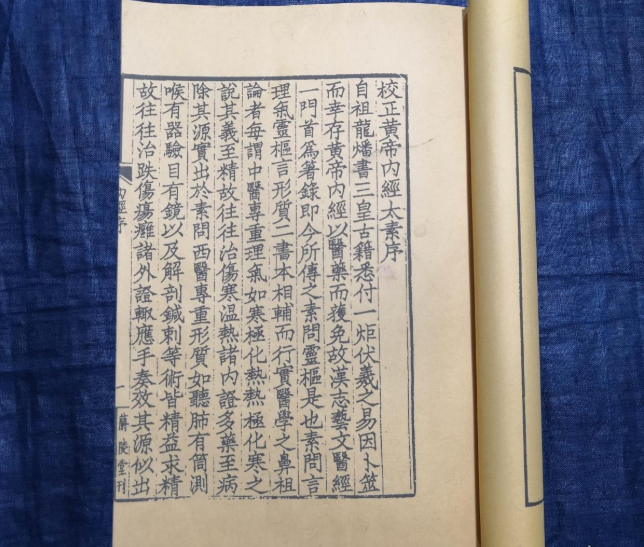 校正黃帝內經太素序
自祖龍燔書三皇古籍悉付一炬伏羲之易因卜筮
而幸存黃帝內經以醫藥而獲免故漢志藝文醫經
一門首為著錄即今所傳之素問靈樞是也素問言
理氣靈樞言形質二書本相輔而行實醫學之鼻祖
論者每謂中醫專重理氣如寒極化熱熱極化寒之
說其義至精故往往治傷寒温熱諸內證多藥至病
除其源實出於素問西醫專重形質如聽肺有筒測
喉有器驗目有鏡以及解剖鍼刺等術皆精益求精
故往往治跌傷瘍癰諸外證輒應手奏效其源似出
內經序
一
蘭陵堂刊